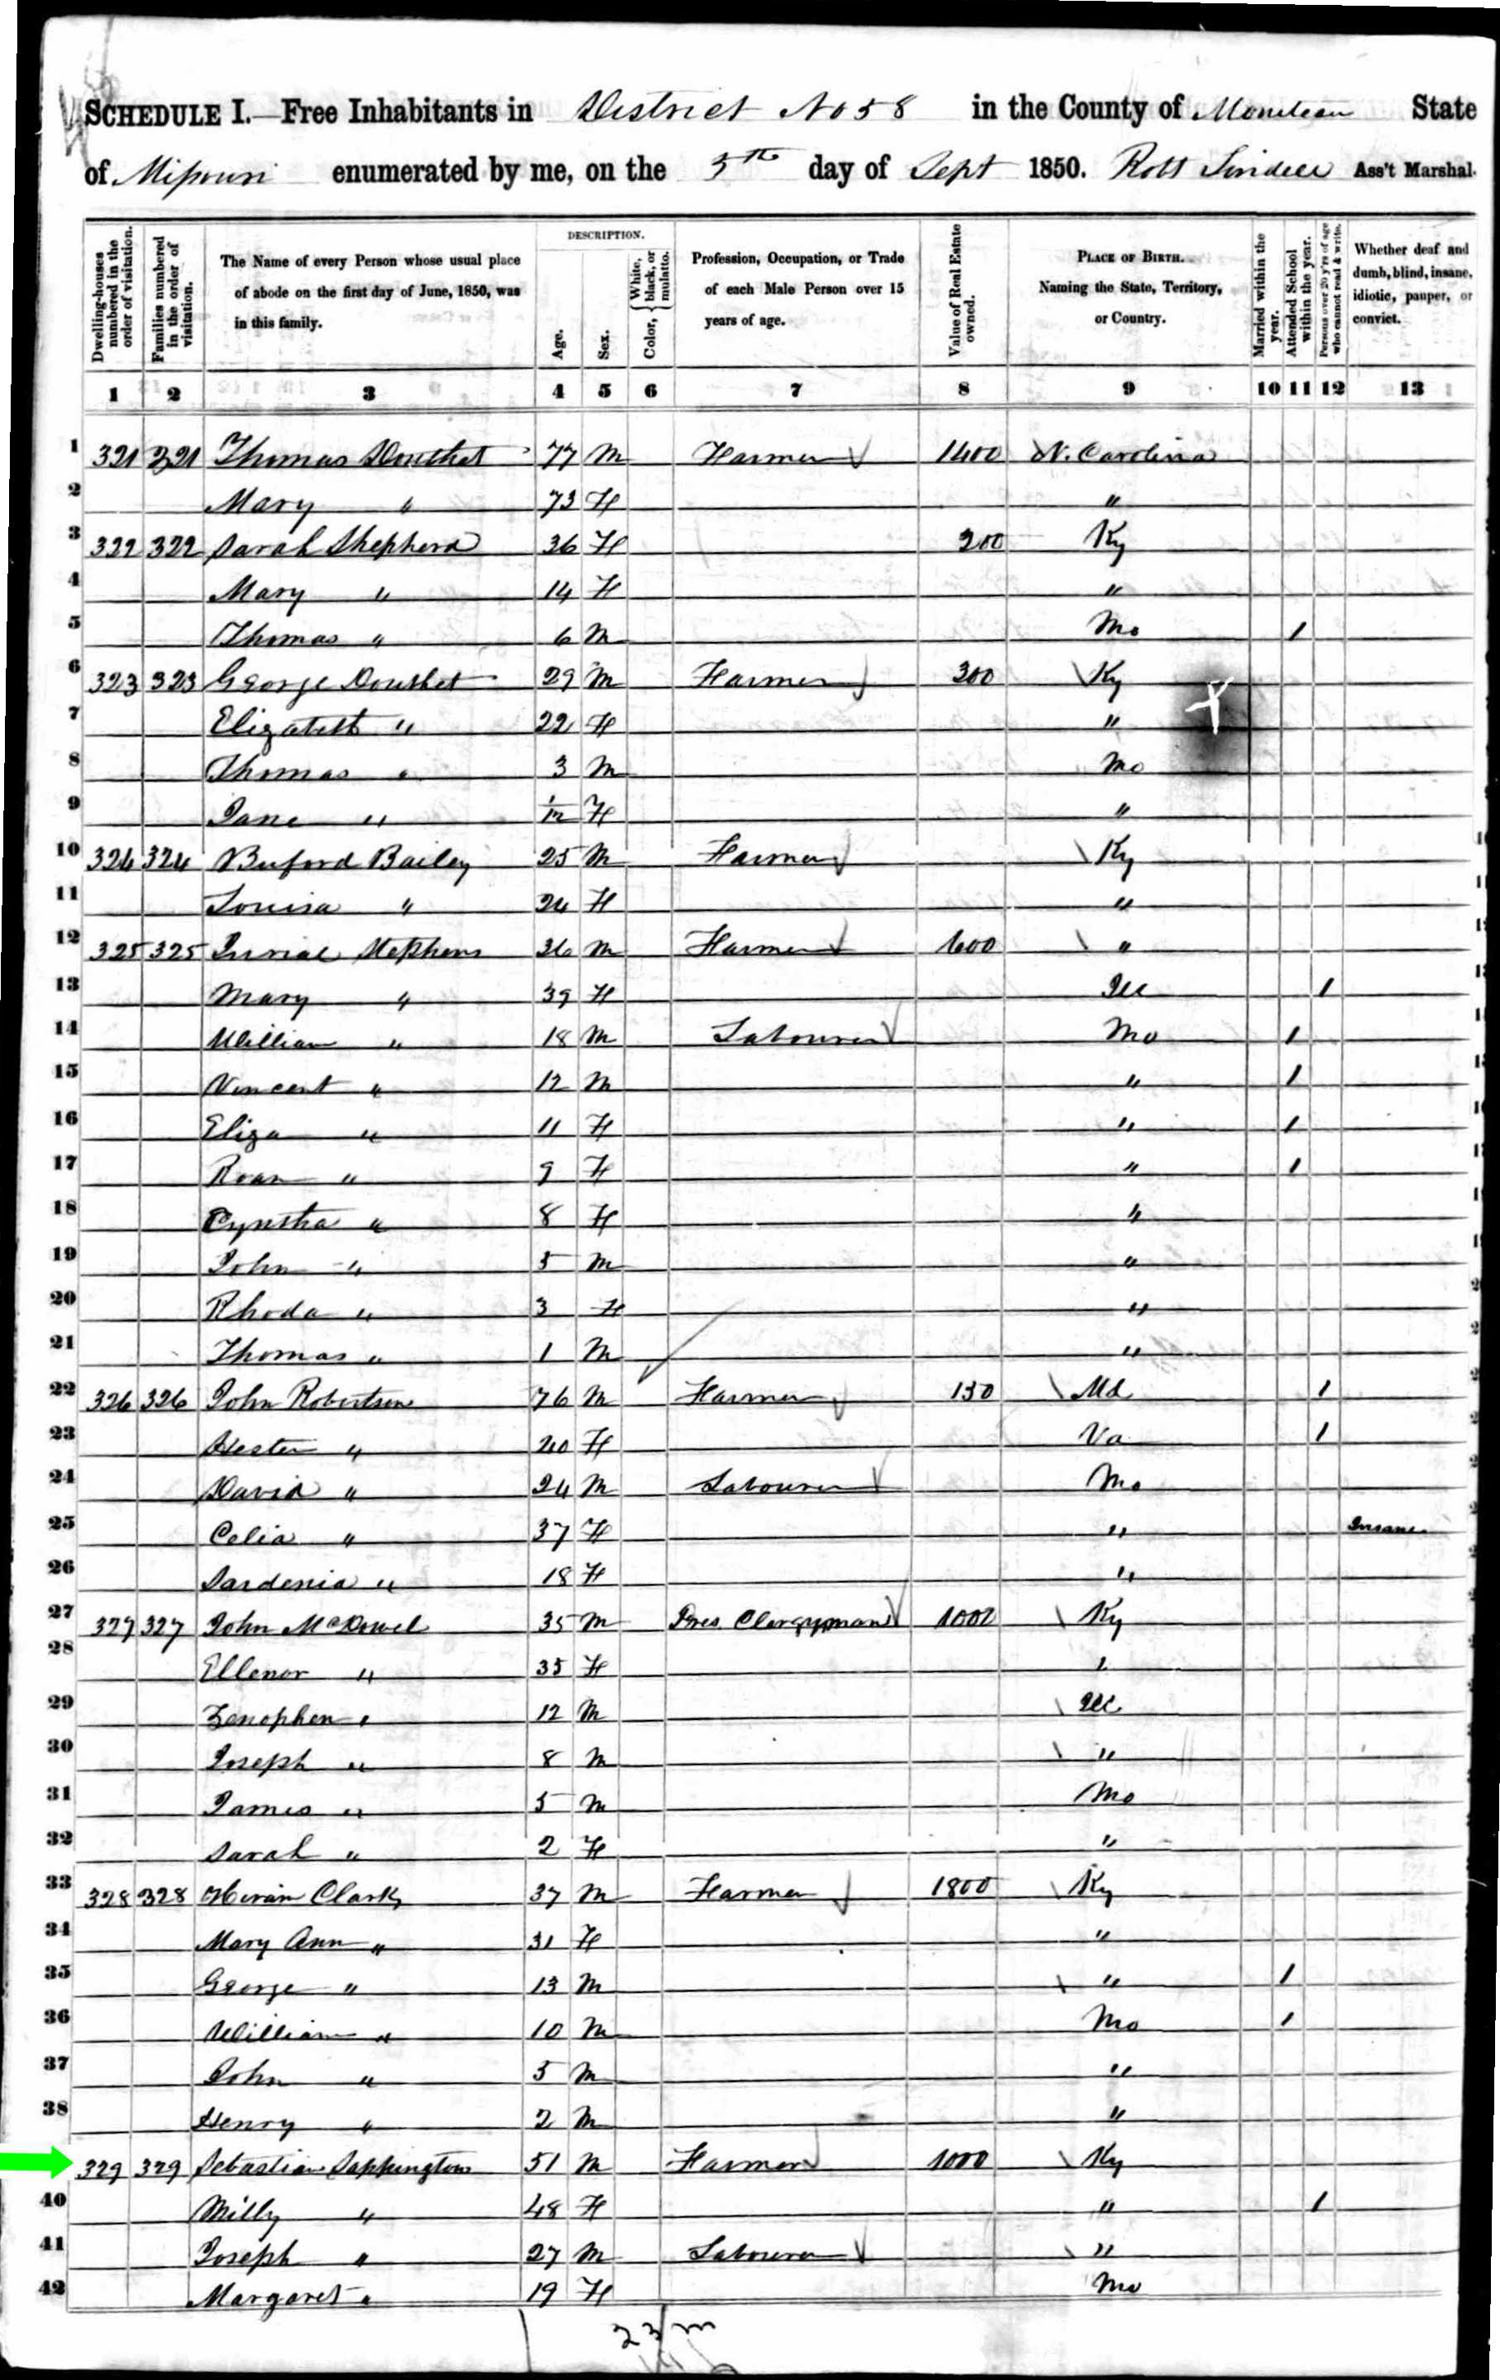 SCHEDULE I.—Free Inhabitants in District No 58 in the County of Moniteau State
of Missouri enumerated by me, on the 5th day of Sept 1850. Robt Ass't Marshal.
Dwelling-houses numbered in the order of visitation.
Families numbered in the order of visitation.
The Name of every Person whose usual place of abode on the first day of June, 1850, was in this family.
DESCRIPTION.
Age.
Sex.
Color, White, black, or mulatto.
Profession, Occupation, or Trade of each Male Person over 15 years of age.
Value of Real Estate owned.
PLACE OF BIRTH. Naming the State, Territory, or Country.
Married within the year.
Attended School within the year.
Persons over 20 y'rs of age who cannot read & write.
Whether deaf and dumb, blind, insane, idiotic, pauper, or convict.
1 2 3 4 5 6 7 8 9 10 11 12 13
1 321 321 Thomas Douthet 77 M Farmer 1400 N. Carolina
2 Mary " 73 F "
3 322 322 Sarah Shepherd 36 F 200 Ky
4 Mary " 14 F "
5 Thomas " 6 M Mo 1
6 323 323 George Douthet 29 M Farmer 300 Ky
7 Elizabeth " 22 F "
8 Thomas " 3 M Mo
9 Jane " 1/12 F "
10 324 324 Buford Bailey 25 M Farmer Ky
11 Louisa " 24 F "
12 325 325 Stephens 36 M Farmer 600 "
13 Mary " 39 F Ill 1
14 William " 18 M Labourer Mo 1
15 Vincent " 12 M " 1
16 Eliza " 11 F " 1
17 Roan " 9 F " 1
18 Cyntha " 8 F "
19 John " 5 M "
20 Rhoda " 3 F "
21 Thomas " 1 M "
22 326 326 John Robertson 76 M Farmer 150 Md 1
23 Hester " F Va 1
24 David " 24 M Labourer Mo
25 Celia " 37 F " Insane
26 Sardenia " 18 F "
27 327 327 John McDowel 35 M Pres. Clergyman 1000 Ky
28 Ellenor " 35 F "
29 Zenophen " 12 M Ill
30 Joseph " 8 M "
31 James " 5 M Mo
32 Sarah " 2 F "
33 328 328 Hiram Clark 37 M Farmer 1800 Ky
34 Mary Ann " 31 F "
35 George " 13 M " 1
36 William " 10 M Mo 1
37 John " 5 M "
38 Henry " 2 M "
329 329 Sebastian Sappington 51 M Farmer 1000 Ky
40 Milly " 48 F " 1
41 Joseph " 27 M Labourer "
42 Margaret " 19 F Mo
23 m